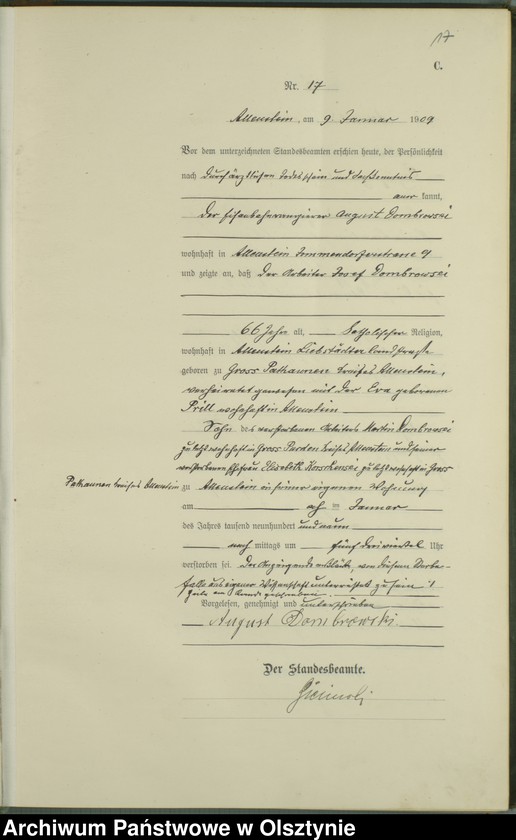 17
C.
Nr. 17
Allenstein, am 9 Januar 1909
Vor dem unterzeichneten Standesbeamten erschien heute, der Persönlichkeit
nach durch ärztlichen Todesschein und
aner kannt,
der Eisenbahnrangierer August Dombrowski
wohnhaft in Allenstein 9
und zeigte an, daß der Arbeiter Josef Dombrowski
66 Jahr alt, katholischer Religion,
wohnhaft in Allenstein Liebstädter
geboren zu Gross Kreises Allenstein,
verheiratet gewesen mit der Eva geborenen
Prill wohnhaft in Allenstein
Sohn des verstorbenen Arbeiters Martin Dombrowski
zuletzt wohnhaft in Gross Purden Kreises Allenstein und seiner
verstorbenen Ehefrau Elisabeth zuletzt wohnhaft in Gross
Kreises Allenstein zu Allenstein in seiner eigenen Wohnung
am acht en Januar
des Jahres tausend neunhundert und neun
nach mittags um fünf dreiviertel Uhr
verstorben sei. Der Anzeigende erklärte, von diesem Sterbe-
falle aus eigener Wissenschaft unterrichtet zu sein. 1
am Rande geschrieben.
Vorgelesen, genehmigt und unterschrieben
August Dombrowski
Der Standesbeamte.
Archiwum Państwowe w Olsztynie